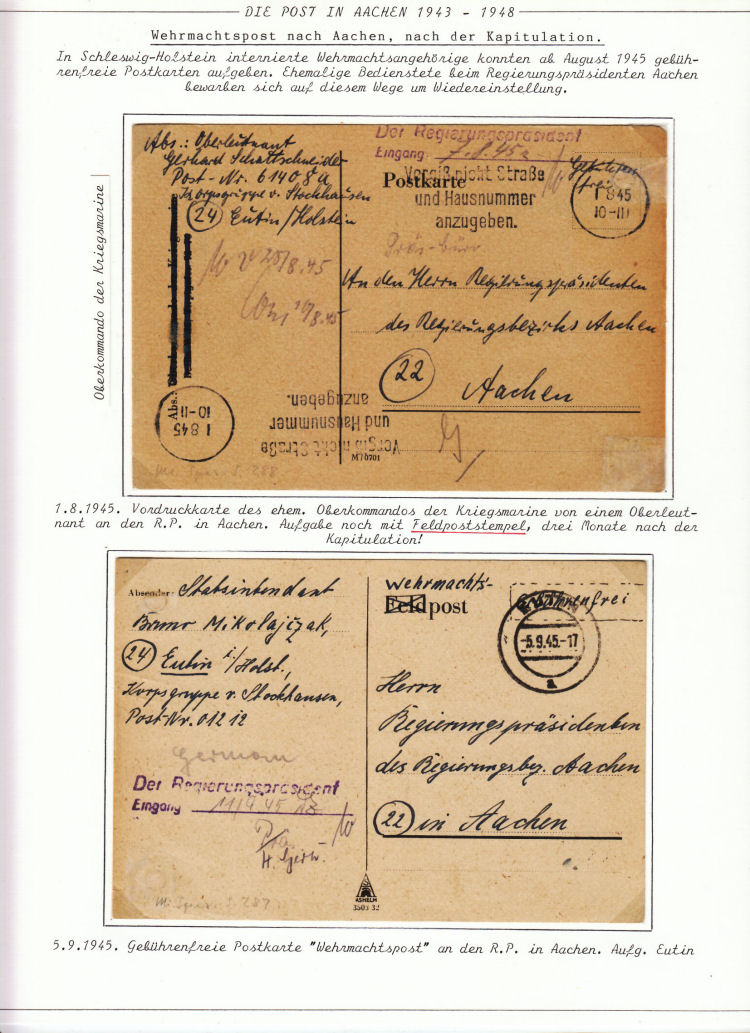 DIE POST IN AACHEN 1943 - 1948
Wehrmachtspost nach Aachen, nach der Kapitulation.
In Schleswig-Holstein internierte Wehrmachtsangehörige konnten ab August 1945 gebüh-
renfreie Postkarten aufgeben. Ehemalige Bedienstete beim Regierungspräsidenten Aachen
bewarben sich auf diesem Wege um Wiedereinstellung.
Oberkommando der Kriegsmarine
Abs.: Oberleutnant
Gerhard Schattschneider
Post-Nr. 61408a
Korpsgruppe v. Stockhausen
24 Eutin/Holstein
28/8.45
/8.45
Abs.:
1 8 45
10-11
Der Regierungspräsident
Eingang 7.8.45
Postkarte
Gebühren
frei
Vergiß nicht Straße
und Hausnummer
anzugeben.
1 8 45
10-11
Präs-büro
An den Herrn Regierungspräsidenten
des Regierungsbezirks Aachen
22
Aachen
Vergiß nicht Straße
und Hausnummer
anzugeben.
M/0701
288
1.8.1945. Vordruckkarte des ehem. Oberkommandos der Kriegsmarine von einem Oberleut-
nant an den R.P. in Aachen. Aufgabe noch mit Feldpoststempel, drei Monate nach der
Kapitulation!
Absender: Stabsintendant
Bruno Mikolajczak,
24 Eutin i/Holst.,
Korpsgruppe v. Stockhausen,
Post-Nr. 01212
Germany
Der Regierungspräsident
Eingang 11/9 45
Wehrmachts-
Feldpost
Gebührenfrei
EUTIN
-5.9.45-17
a
Herrn
Regierungspräsidenten
des Regierungsbez. Aachen
22 in Aachen
ASHELM
3503 32
287
5.9.1945. Gebührenfreie Postkarte "Wehrmachtspost" an den R.P. in Aachen. Aufg. Eutin